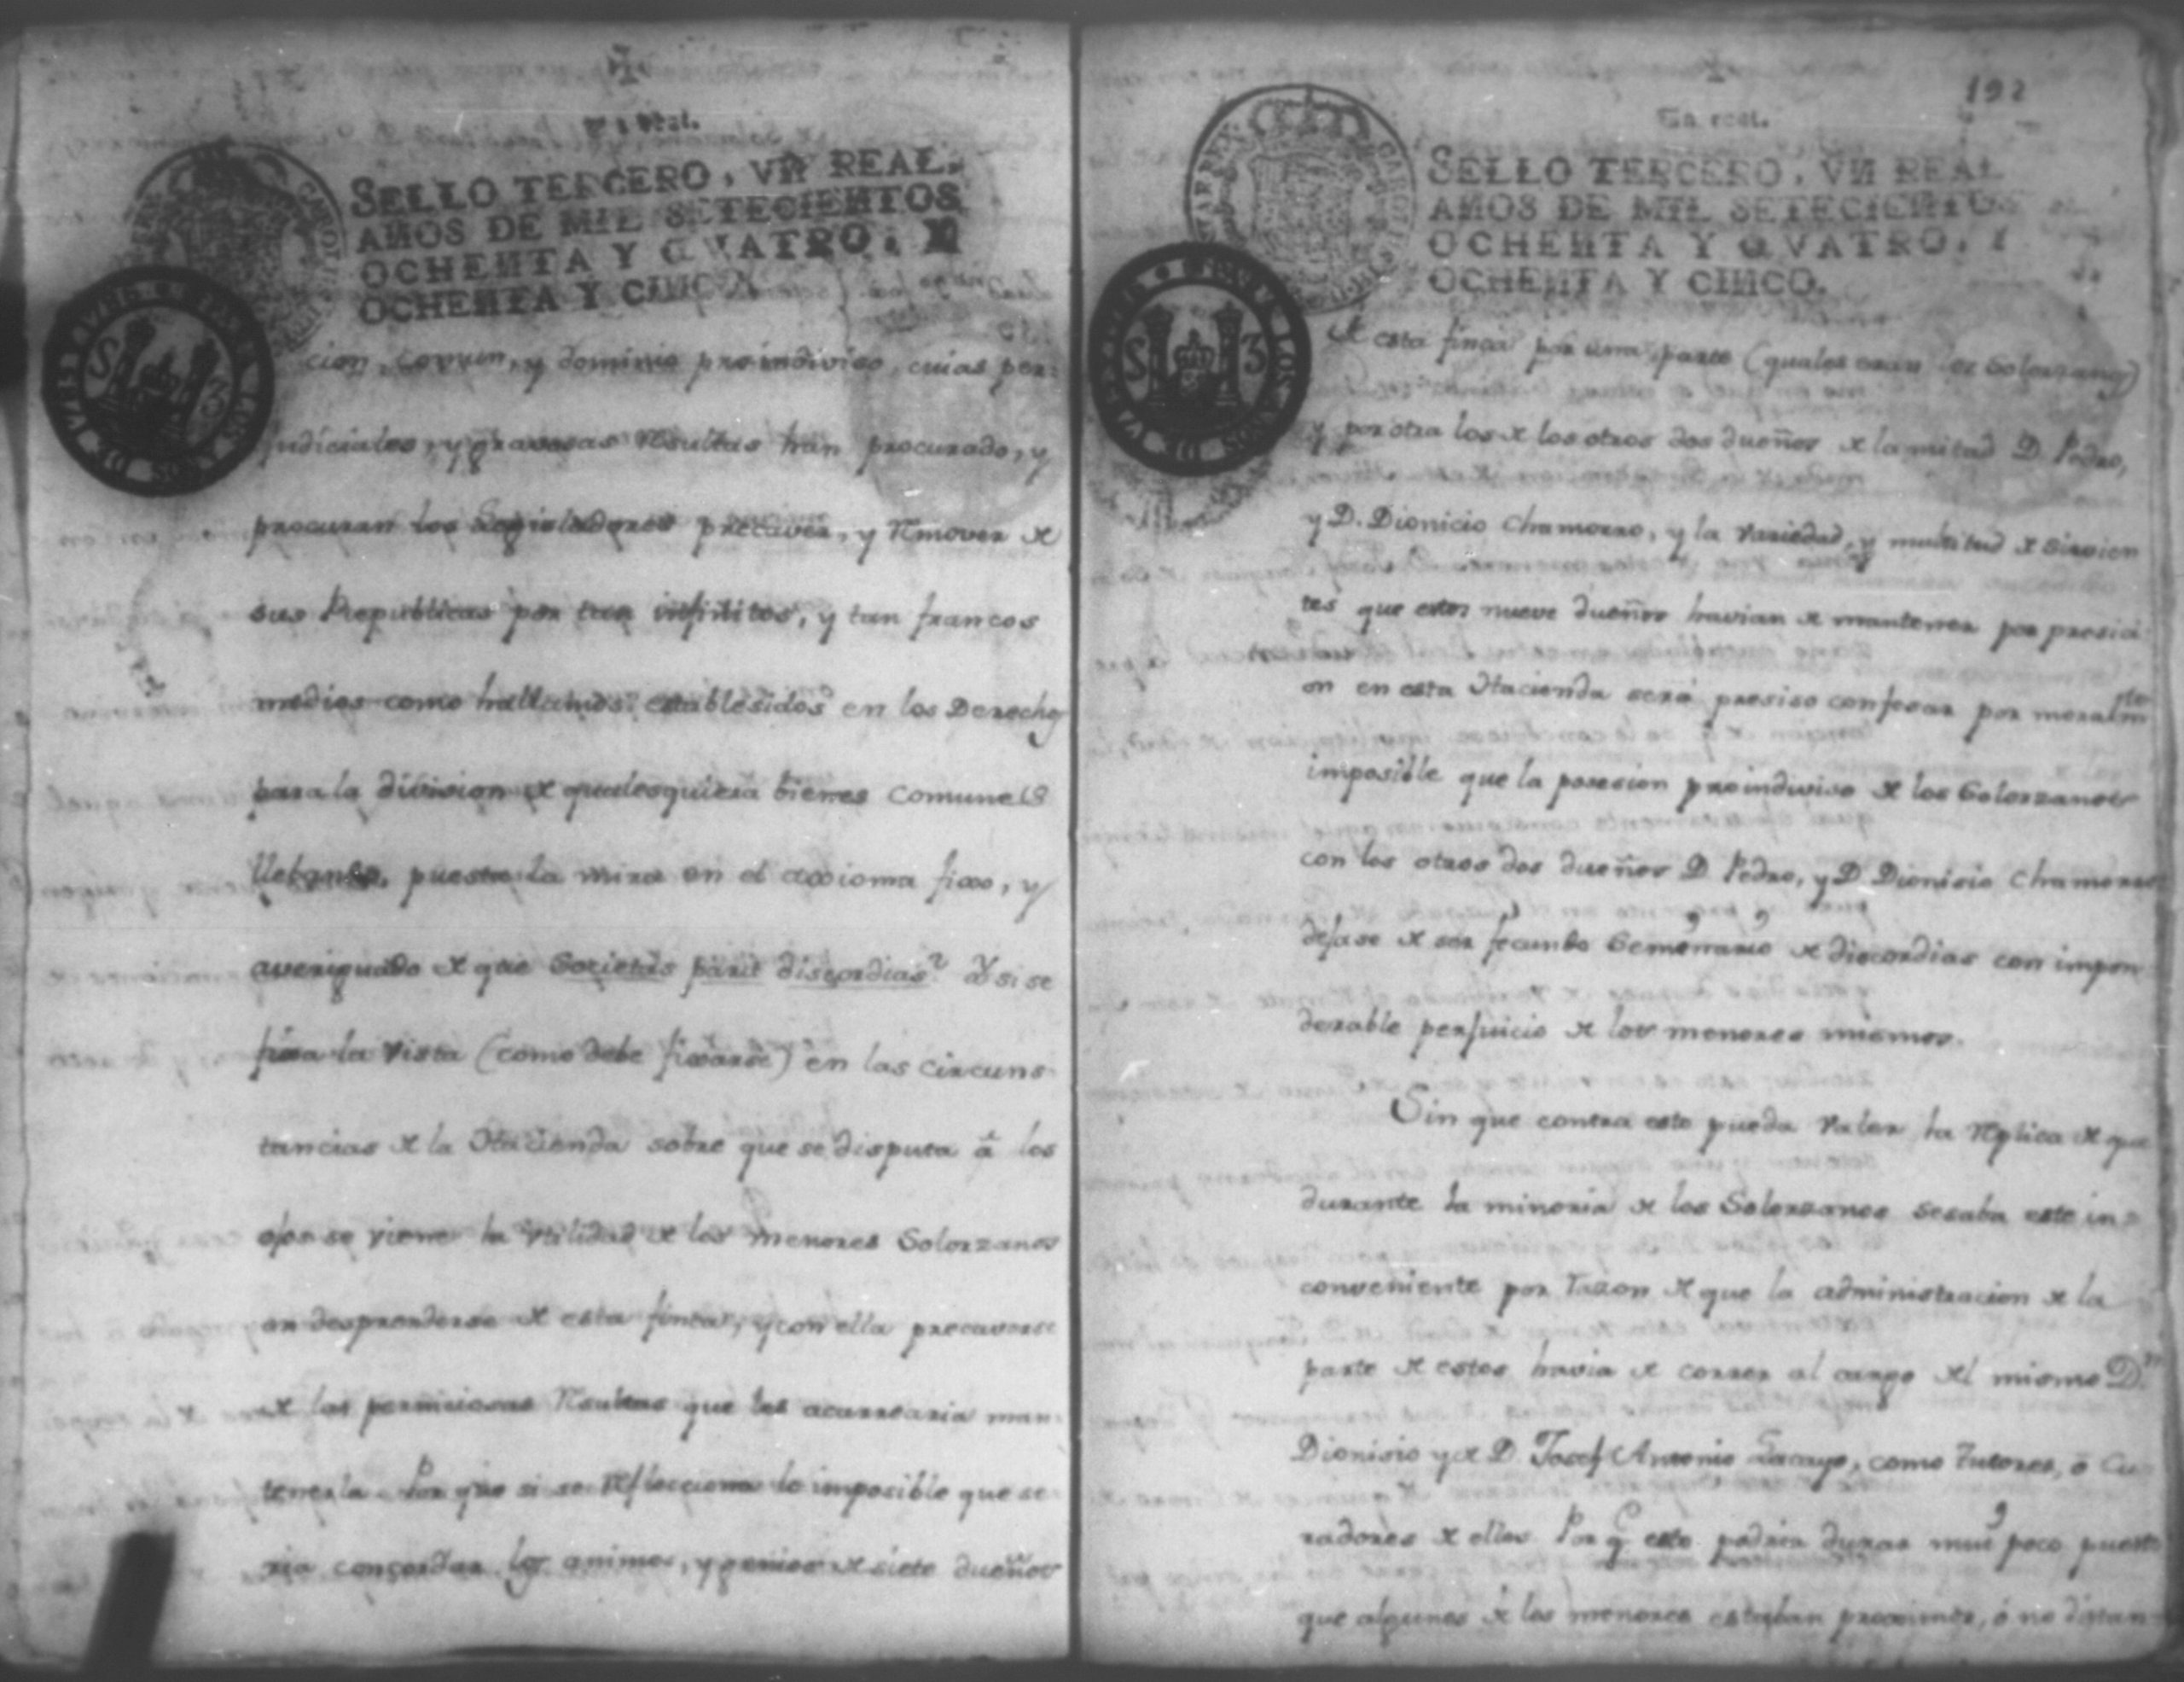 Vn real.
SELLO TERCERO, VN REAL,
AÑOS DE MIL SETECIENTOS
OCHENTA Y QVATRO, Y
OCHENTA Y CINCO.
cion comun, y dominio proindiviso, cuias per-
judiciales, y gravosas Resultas han procurado, y
procuran los Legisladores precaver, y Remover de
sus Republicas por tan infinitos, y tan francos
medios como hallamos establesidos en los Derechos
para la division de qualesquiera bienes comunes
llebando, puesta la mira en el axioma fixo, y
averiguado de que Societas parit discordias. Y si se
fixa la vista (como debe fixarse) en las circuns-
tancias de la Hacienda sobre que se disputa â los
ojos se viene la utilidad de los menores Solorzanos
en desprenderse de esta finca, y con ella precaverse
de las perniciosas Resultas que les acarrearia man-
tenerla. Por que si se Reflecciona lo imposible que se-
ria concordar los animos, y genios de siete dueños
192
Vn real.
SELLO TERCERO, VN REAL
AÑOS DE MIL SETECIENTOS
OCHENTA Y QVATRO, Y
OCHENTA Y CINCO.
de esta finca por una parte (quales eran los Solorzanos)
y por otra los de los otros dos dueños de la mitad D. Pedro,
y D. Dionicio Chamorro, y la variedad, y multitud de sirvien
tes que estos nueve dueños havian de mantener por presici-
on en esta Hacienda será presiso confesar por moralmte
imposible que la posesion proindiviso de los Solorzanos
con los otros dos dueños D. Pedro, y D. Dionisio Chamorro
dejase de ser fecundo Semenario de discordias con impon
derable perjuicio de los menores mismos.
Sin que contra esto pueda valer la Replica de que
durante la minoria de los Solorzanos sesaba este in-
conveniente por razon de que la administracion de la
parte de estos havia de correr al cargo del mismo Dn
Dionisio y de D. Josef Antonio Lacayo, como tutores, o Cu
radores de ellos. Por q esto podria durar mui poco puesto
que algunos de los menores estaban proximos, ó no distan-